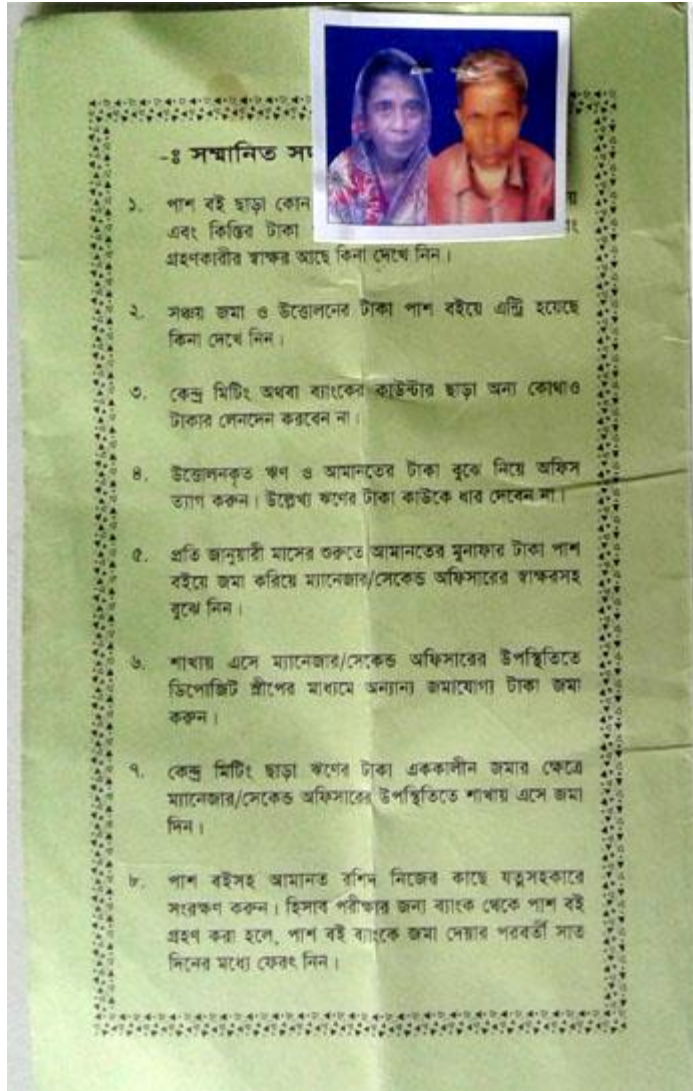 -ঃ সম্মানিত
১. পাশ বই ছাড়া কোন
এবং কিস্তির টাকা
গ্রহণকারীর স্বাক্ষর আছে কিনা দেখে নিন।
২. সঞ্চয় জমা ও উত্তোলনের টাকা পাশ বইয়ে এন্ট্রি হয়েছে
কিনা দেখে নিন।
৩. কেন্দ্র মিটিং অথবা ব্যাংকের কাউন্টার ছাড়া অন্য কোথাও
টাকার লেনদেন করবেন না।
৪. উত্তোলনকৃত ঋণ ও আমানতের টাকা বুঝে নিয়ে অফিস
ত্যাগ করুন। উল্লেখ্য ঋণের টাকা কাউকে ধার দেবেন না।
৫. প্রতি জানুয়ারী মাসের শুরুতে আমানতের মুনাফার টাকা পাশ
বইয়ে জমা করিয়ে ম্যানেজার/সেকেন্ড অফিসারের স্বাক্ষরসহ
বুঝে নিন।
৬. শাখায় এসে ম্যানেজার/সেকেন্ড অফিসারের উপস্থিতিতে
ডিপোজিট স্লীপের মাধ্যমে অন্যান্য জমাযোগ্য টাকা জমা
করুন।
৭. কেন্দ্র মিটিং ছাড়া ঋণের টাকা এককালীন জমার ক্ষেত্রে
ম্যানেজার/সেকেন্ড অফিসারের উপস্থিতিতে শাখায় এসে জমা
দিন।
৮. পাশ বইসহ আমানত রশিদ নিজের কাছে যত্নসহকারে
সংরক্ষণ করুন। হিসাব পরীক্ষার জন্য ব্যাংক থেকে পাশ বই
গ্রহণ করা হলে, পাশ বই ব্যাংকে জমা দেয়ার পরবর্তী সাত
দিনের মধ্যে ফেরৎ নিন।